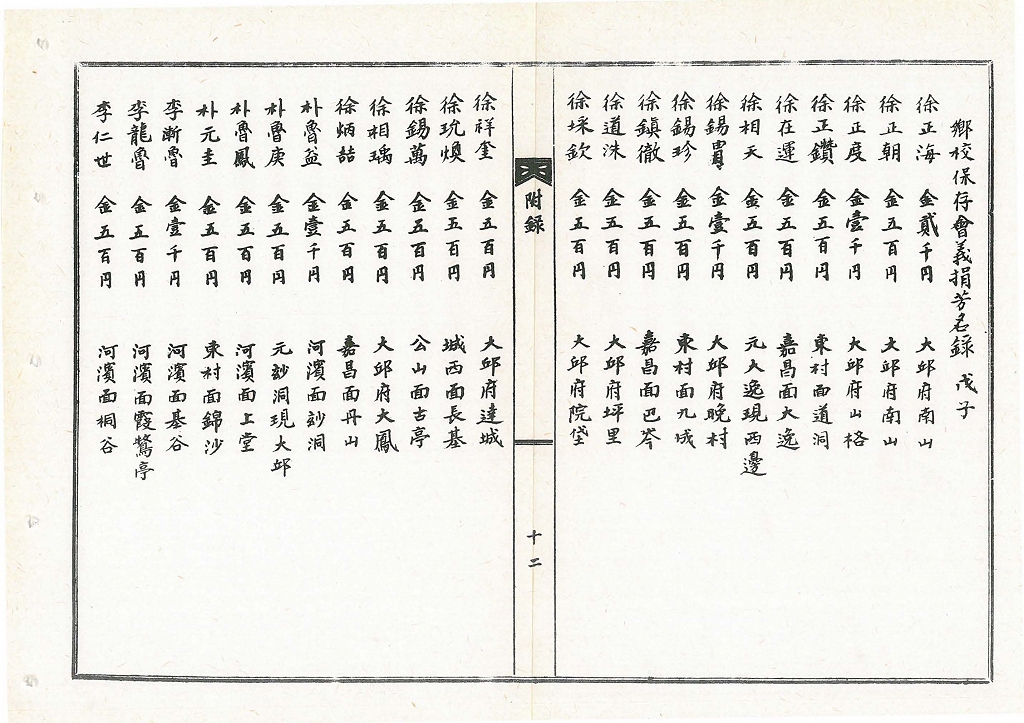 鄉校保存會義捐芳名錄 戊子
徐正海 金貳千円 大邱府南山
徐正朝 金五百円 大邱府南山
徐正度 金壹千円 大邱府山格
徐正鑽 金五百円 東村面道洞
徐在運 金五百円 嘉昌面大逸
徐相天 金五百円 元大逸現西邊
徐錫胄 金壹千円 大邱府晚村
徐錫珍 金五百円 東村面九成
徐鎮徹 金五百円 嘉昌面巴岑
徐道洙 金五百円 大邱府坪里
徐埰欽 金五百円 大邱府院垈
附錄
十二
徐祥奎 金五百円 大邱府達城
徐玧煥 金五百円 城西面長基
徐錫萬 金五百円 公山面古亭
徐相瑀 金五百円 大邱府大鳳
徐炳喆 金五百円 嘉昌面丹山
朴魯益 金壹千円 河濱面玅洞
朴魯庚 金五百円 元玅洞現大邱
朴魯鳳 金五百円 河濱面上堂
朴元圭 金五百円 東村面錦沙
李漸魯 金壹千円 河濱面基谷
李龍魯 金五百円 河濱面霞鶩亭
李仁世 金五百円 河濱面桐谷